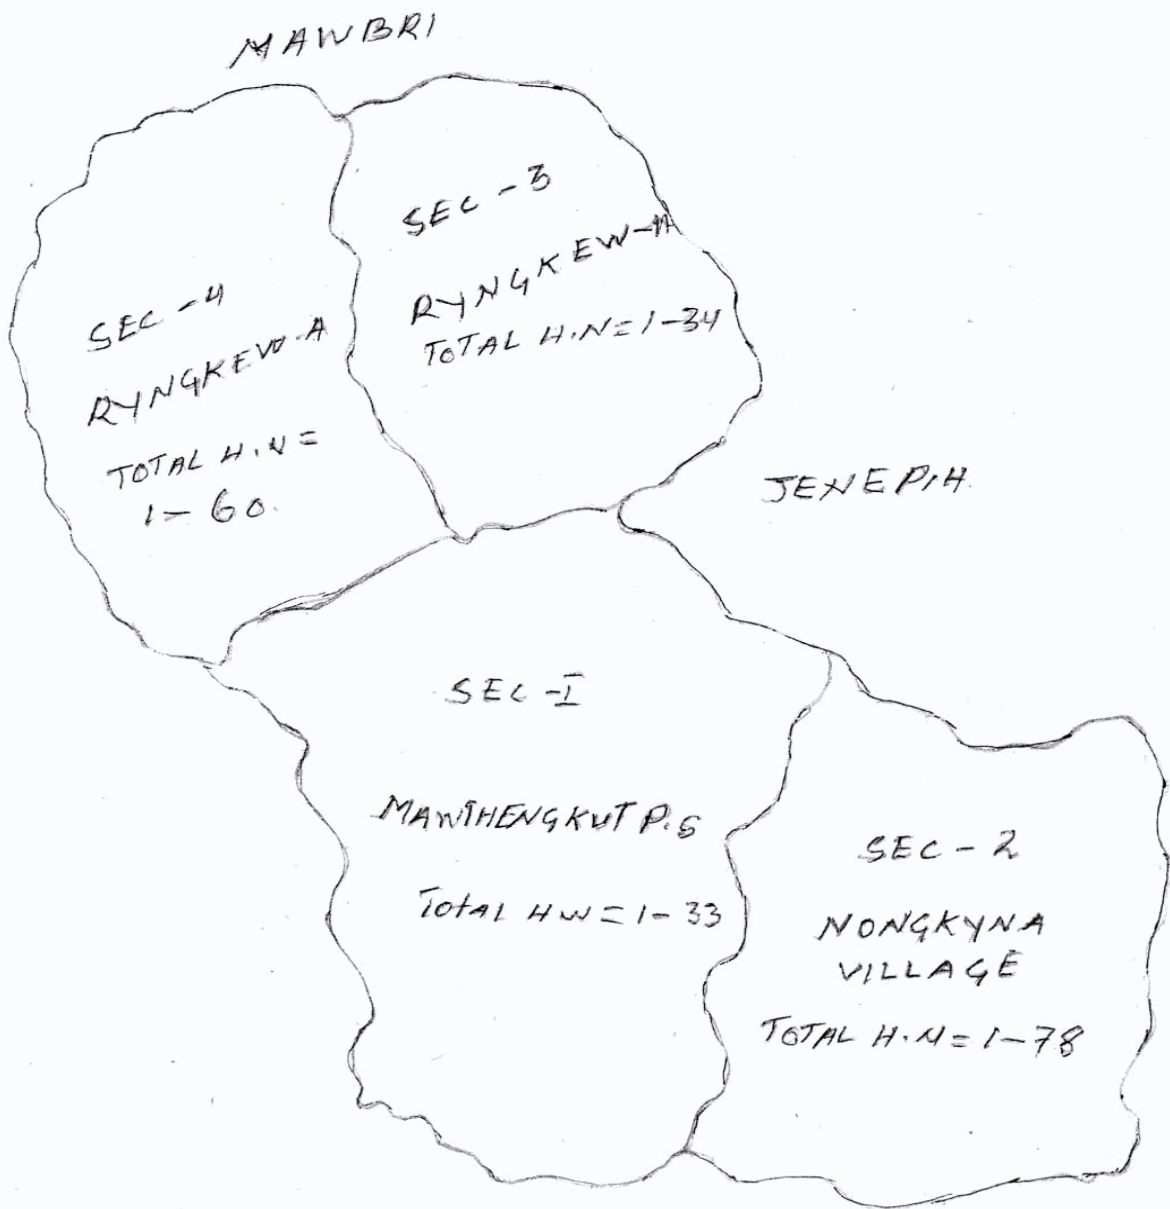 MAWBRI
SEC-3
RYNGKEW-A
TOTAL H.N=1-34
SEC-4
RYNGKEW-A
TOTAL H.N=
1-60.
JENEPIH
SEC-I
MAWTHENGKUT P.S
TOTAL HN=1-33
SEC-2
NONGKYNA
VILLAGE
TOTAL H.N=1-78